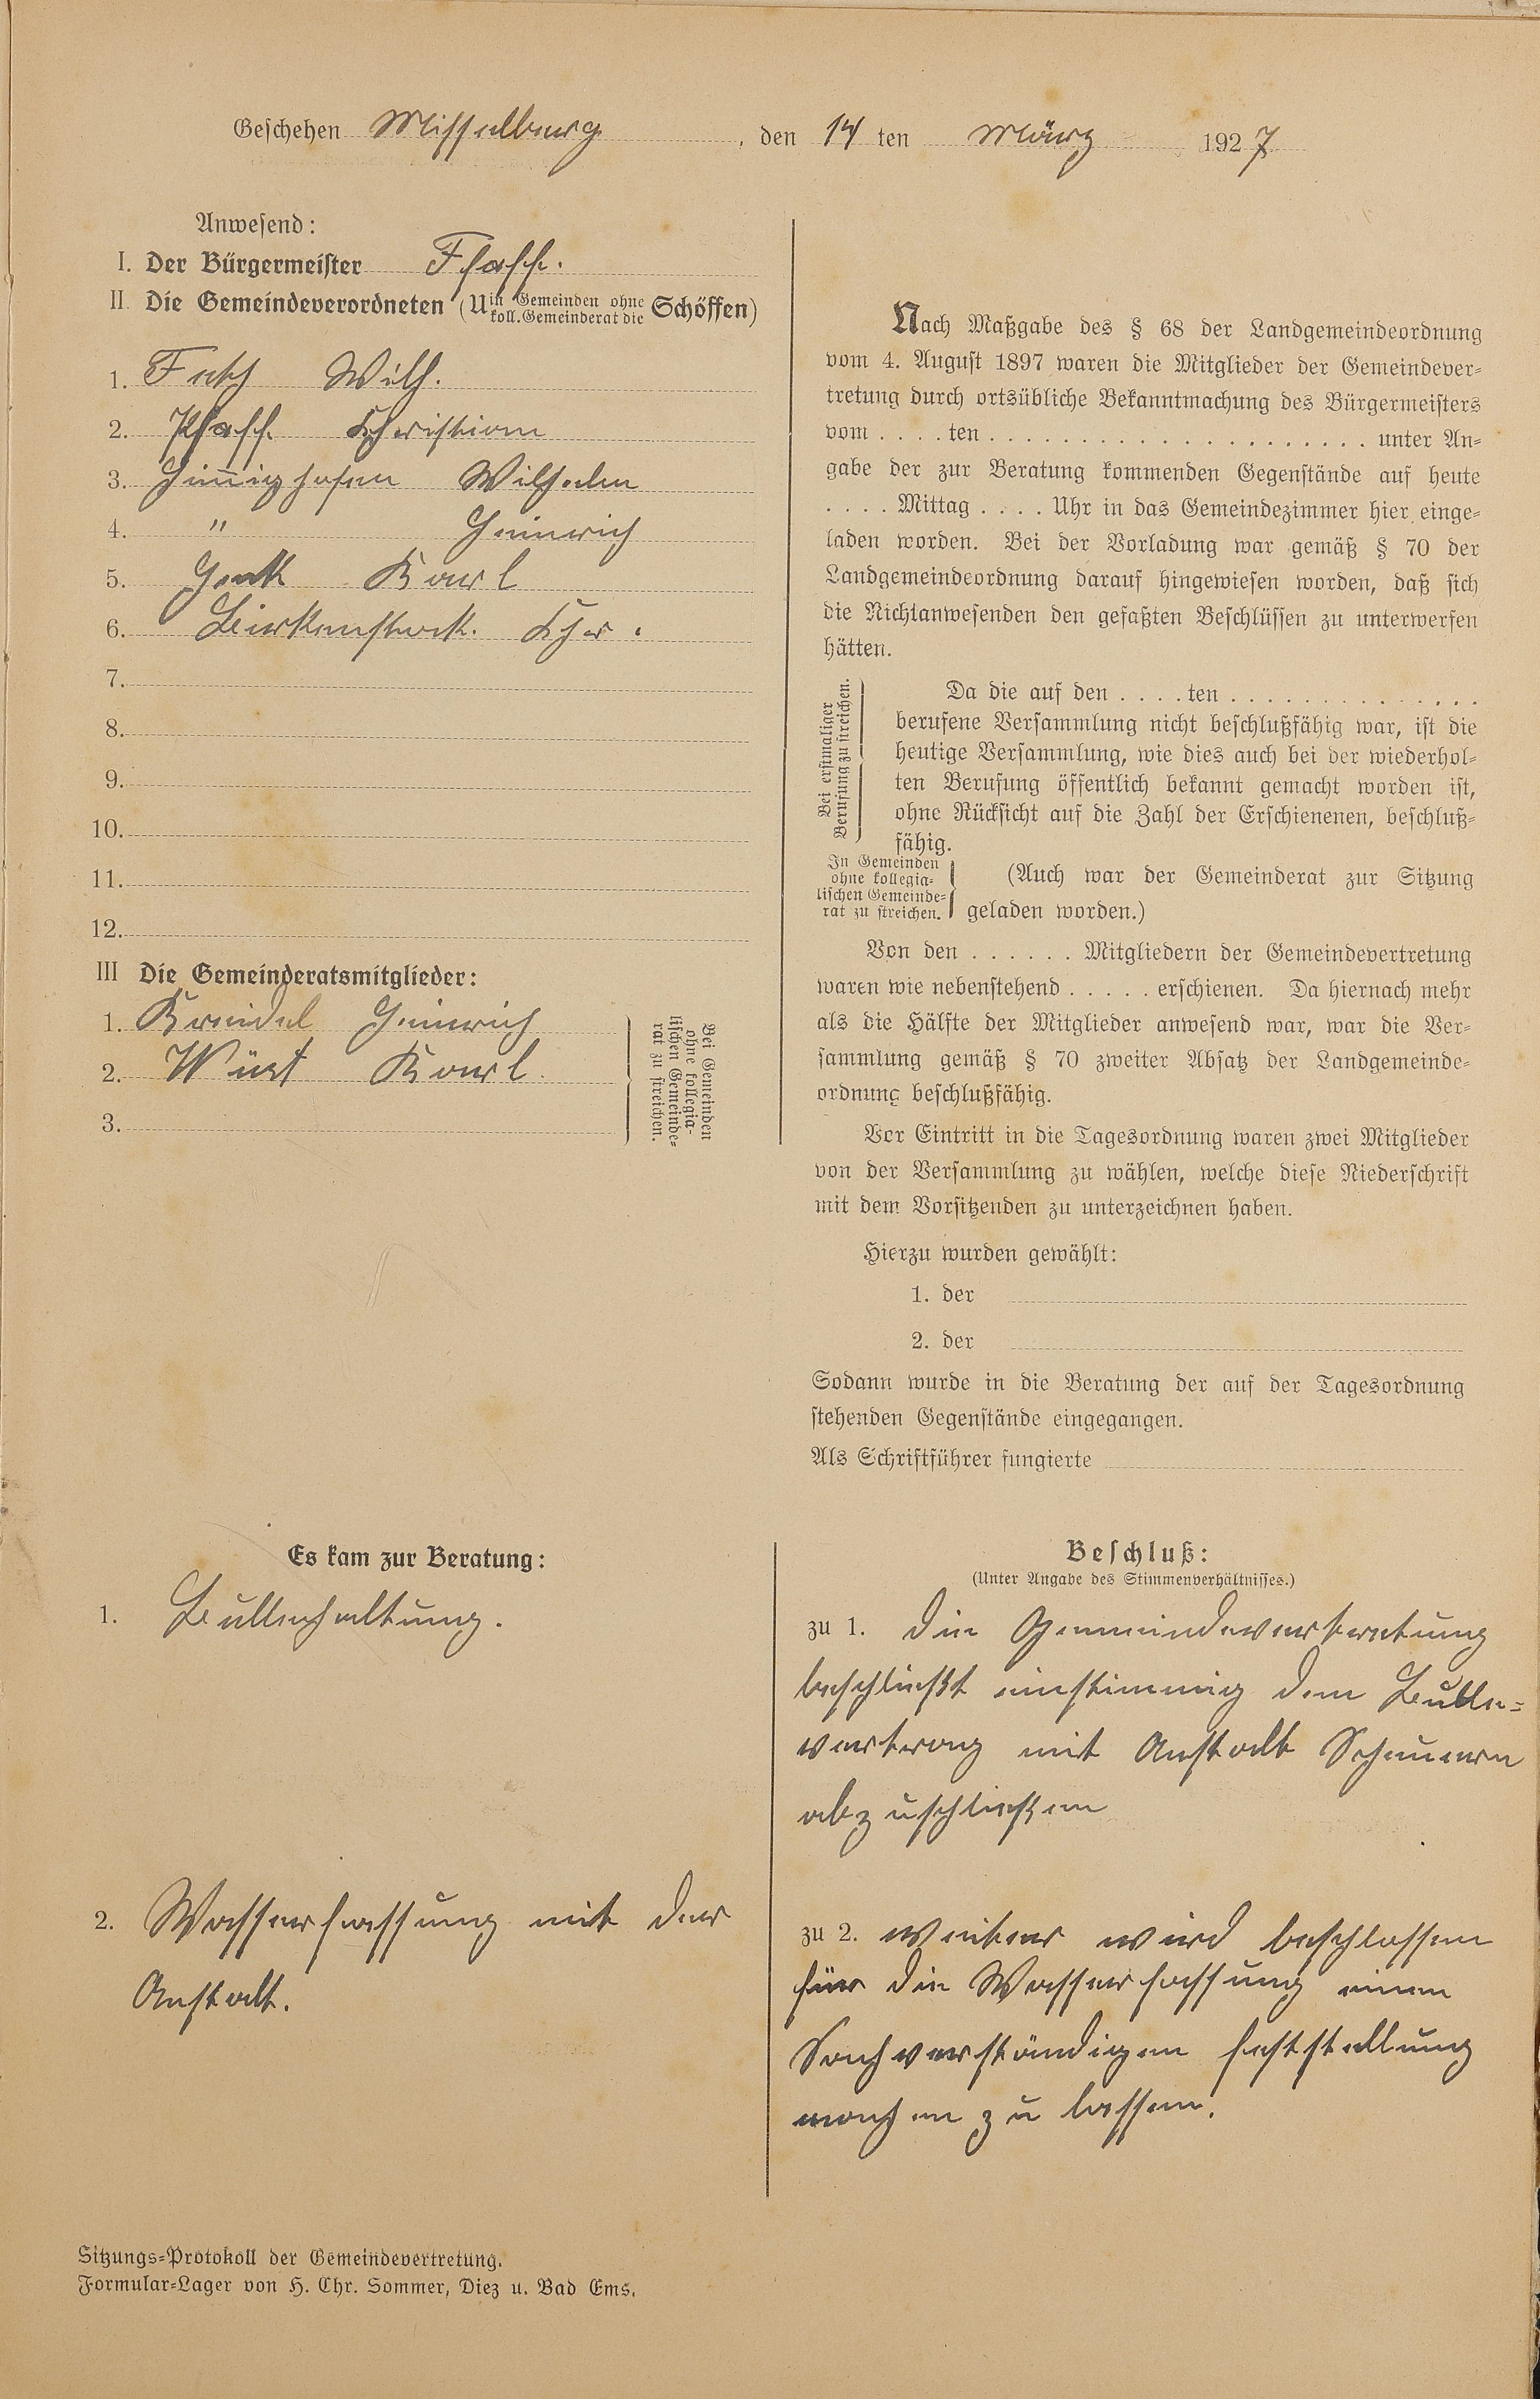 Geschehen Misselberg, den 14 ten März 1927
Anwesend:
I. Der Bürgermeister Pfaff.
II. Die Gemeindeverordneten (U in Gemeinden ohne koll. Gemeinderat die Schöffen)
1. Wilh.
2. Pfaff. Christian
3. Himmighofen Wilhelm
4. " Heinrich
5. Karl
6. Birkenstock. Chr.
7.
8.
9.
10.
11.
12.
III Die Gemeinderatsmitglieder:
1. Kreidel Heinrich
2. Würt Karl.
3.
Bei Gemeinden
ohne kollegia-
lischen Gemeinde-
rat zu streichen.
Nach Maßgabe des § 68 der Landgemeindeordnung
vom 4. August 1897 waren die Mitglieder der Gemeindever-
tretung durch ortsübliche Bekanntmachung des Bürgermeisters
vom . . . . ten . . . . . . . . . . . . . . . . . . . . unter An-
gabe der zur Beratung kommenden Gegenstände auf heute
. . . . Mittag . . . . Uhr in das Gemeindezimmer hier einge-
laden worden. Bei der Vorladung war gemäß § 70 der
Landgemeindeordnung darauf hingewiesen worden, daß sich
die Nichtanwesenden den gefaßten Beschlüssen zu unterwerfen
hätten.
Bei erstmaliger
Berufung zu streichen.
Da die auf den . . . . ten . . . . . . . . . . . . . .
berufene Versammlung nicht beschlußfähig war, ist die
heutige Versammlung, wie dies auch bei der wiederhol-
ten Berufung öffentlich bekannt gemacht worden ist,
ohne Rücksicht auf die Zahl der Erschienenen, beschluß-
fähig.
In Gemeinden
ohne kollegia-
lischen Gemeinde-
rat zu streichen.
(Auch war der Gemeinderat zur Sitzung
geladen worden.)
Von den . . . . . . Mitgliedern der Gemeindevertretung
waren wie nebenstehend . . . . . erschienen. Da hiernach mehr
als die Hälfte der Mitglieder anwesend war, war die Ver-
sammlung gemäß § 70 zweiter Absatz der Landgemeinde-
ordnung beschlußfähig.
Vor Eintritt in die Tagesordnung waren zwei Mitglieder
von der Versammlung zu wählen, welche diese Niederschrift
mit dem Vorsitzenden zu unterzeichnen haben.
Hierzu wurden gewählt:
1. der
2. der
Sodann wurde in die Beratung der auf der Tagesordnung
stehenden Gegenstände eingegangen.
Als Schriftführer fungierte
Es kam zur Beratung:
1. Bullenhaltung.
2. Wasserfassung mit der
Anstalt.
Beschluß:
(Unter Angabe des Stimmenverhältnisses.)
zu 1. die Gemeindevertretung
beschließt einstimmig den Bullen-
vertrag mit Anstalt Scheuern
abzuschließen
zu 2. weiter wird beschlossen
für die Wasserfassung einen
Sachverständigen feststellung
machen zu lassen.
Sitzungs-Protokoll der Gemeindevertretung.
Formular-Lager von H. Chr. Sommer, Diez u. Bad Ems.